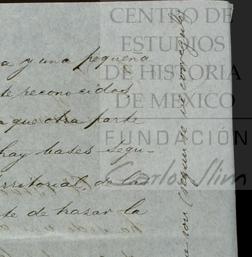 CENTRO DE
ESTUDIOS
DE HISTORIA
DE MEXICO
FUNDACIÓN
Carlos Slim
a y una pequeña
te reconocidos
a que otra parte
hay bases segu-
rritorial de la
te de trazar la